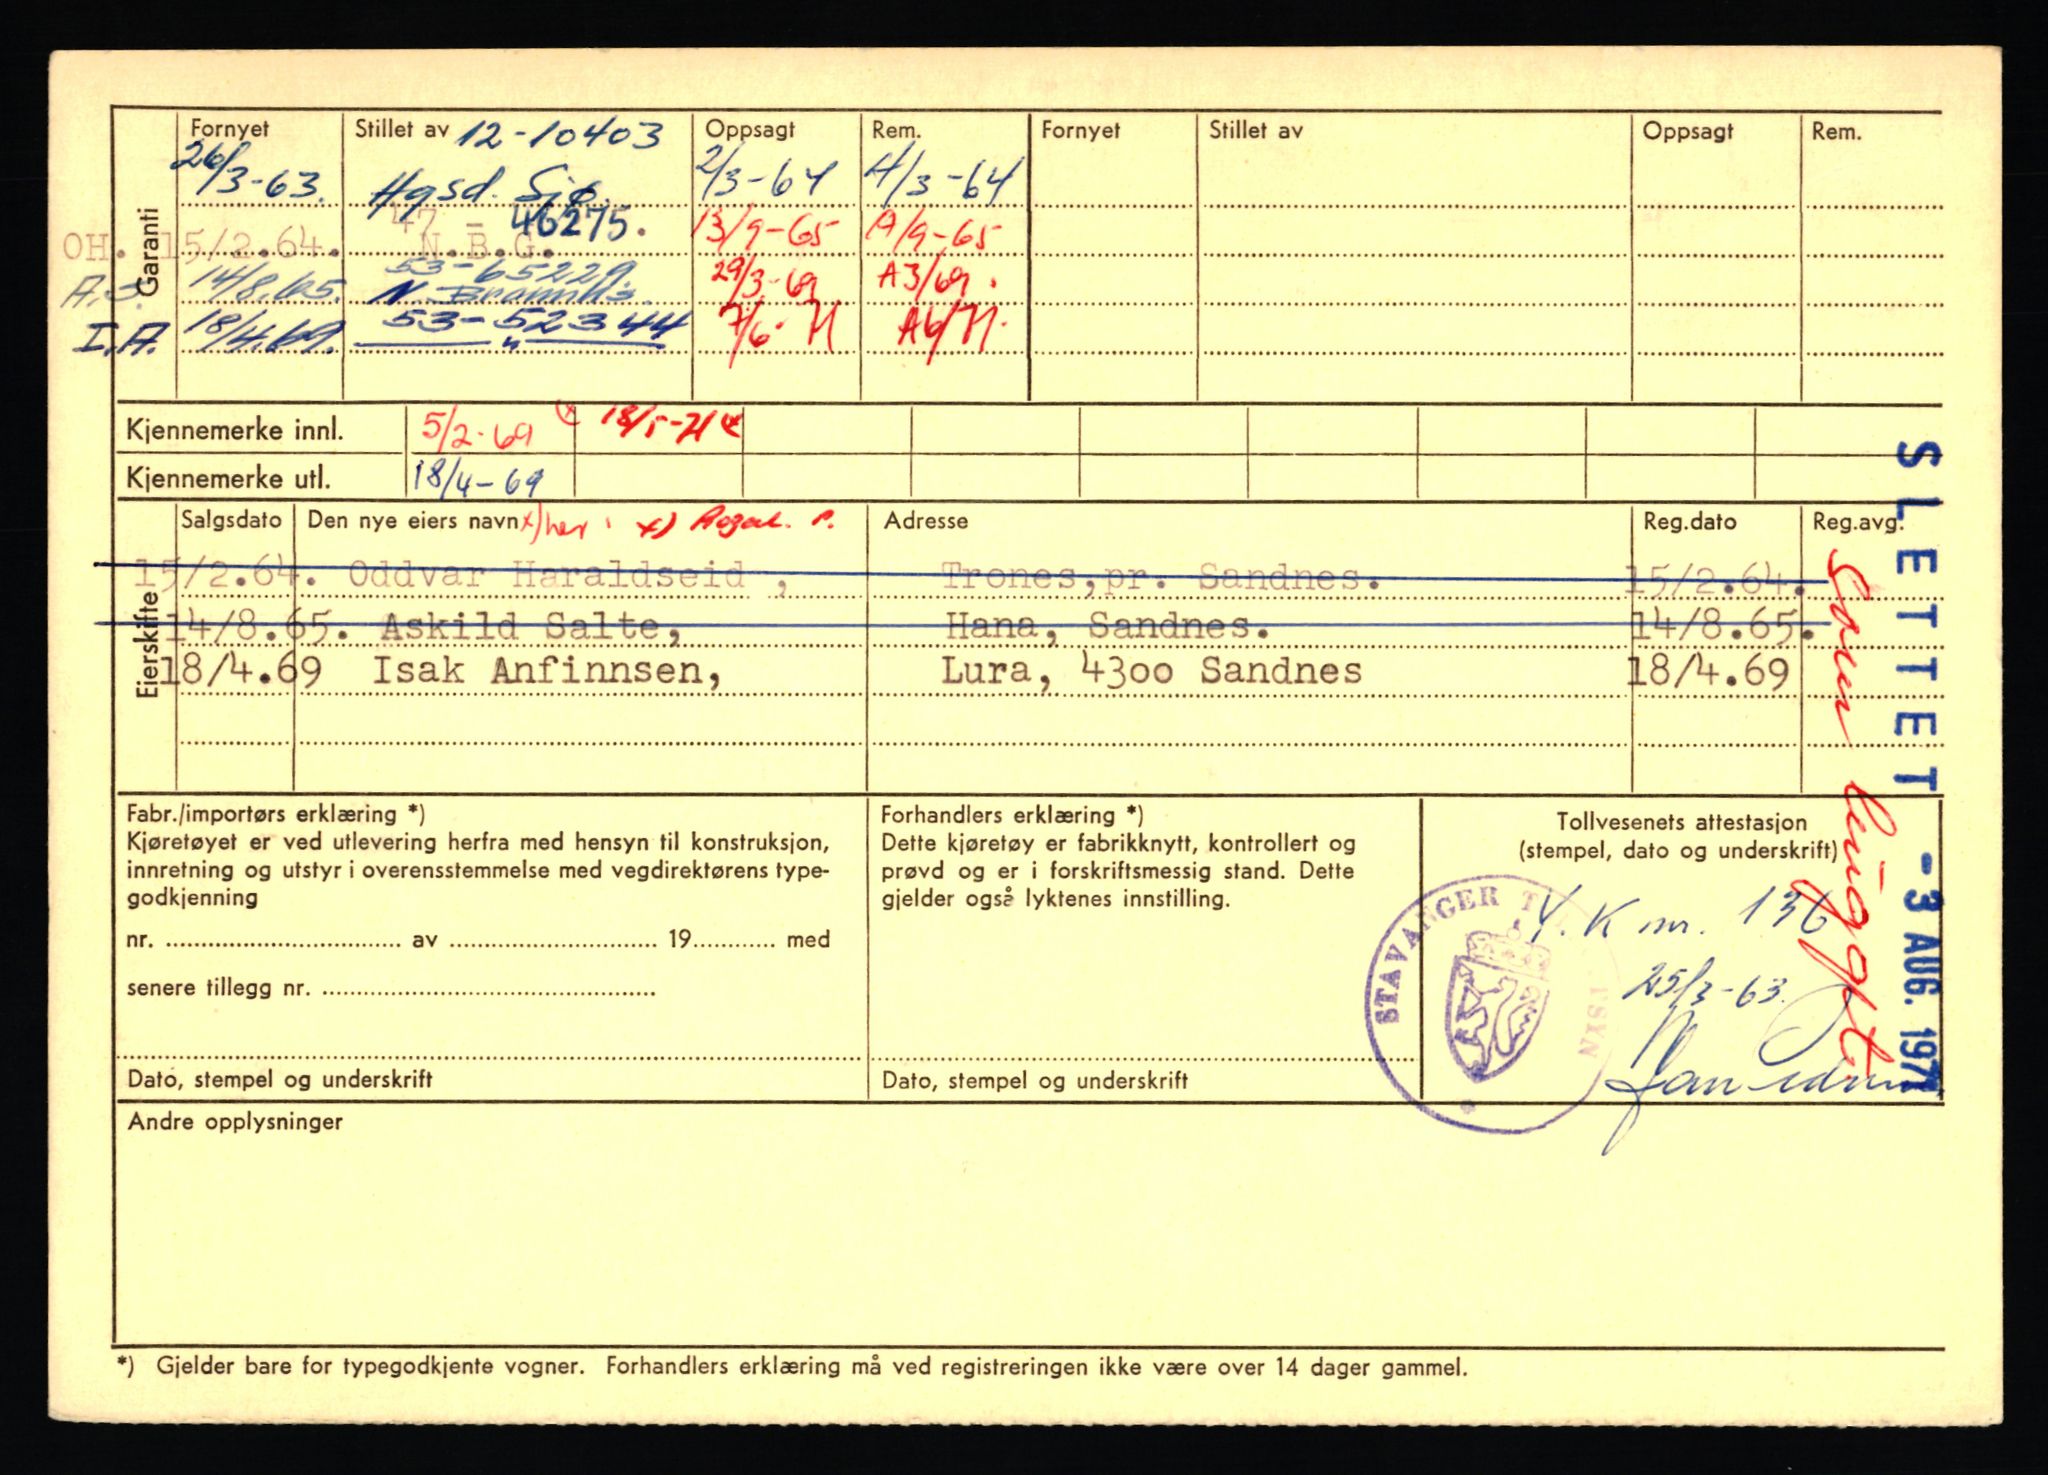 Garanti
Fornyet Stillet av 12-10403 Oppsagt Rem. Fornyet Stillet av Oppsagt Rem.
26/3-63. Hgsd. Sjø. 2/3-64 4/3-64
OH. 15/2.64. 47 - 46275. N.B.G. 13/9-65 A/9-65
A.S. 14/8.65. 53-65229. N. 29/3-69 A3/69.
I.A. 18/4.69. 53-52344 " 7/6-71 A6/71.
Kjennemerke innl. 5/2-69 18/5-71
Kjennemerke utl. 18/4-69
Eierskifte
Salgsdato Den nye eiers navn x) her x) Rogal. P. Adresse Reg.dato Reg.avg.
15/2.64. Oddvar Haraldseid , Trones,pr. Sandnes. 15/2.64.
14/8.65. Askild Salte, Hana, Sandnes. 14/8.65.
18/4.69 Isak Anfinnsen, Lura, 4300 Sandnes 18/4.69
SLETTET - 3 AUG. 1971
Som hugget
Fabr./importørs erklæring *)
Kjøretøyet er ved utlevering herfra med hensyn til konstruksjon,
innretning og utstyr i overensstemmelse med vegdirektørens type-
godkjenning
nr. .................... av .................... 19............ med
senere tillegg nr. ....................
Dato, stempel og underskrift
Forhandlers erklæring *)
Dette kjøretøy er fabrikknytt, kontrollert og
prøvd og er i forskriftsmessig stand. Dette
gjelder også lyktenes innstilling.
Dato, stempel og underskrift
Tollvesenets attestasjon
(stempel, dato og underskrift)
STAVANGER
V.K nr. 136
25/3-63.
Andre opplysninger
*) Gjelder bare for typegodkjente vogner. Forhandlers erklæring må ved registreringen ikke være over 14 dager gammel.